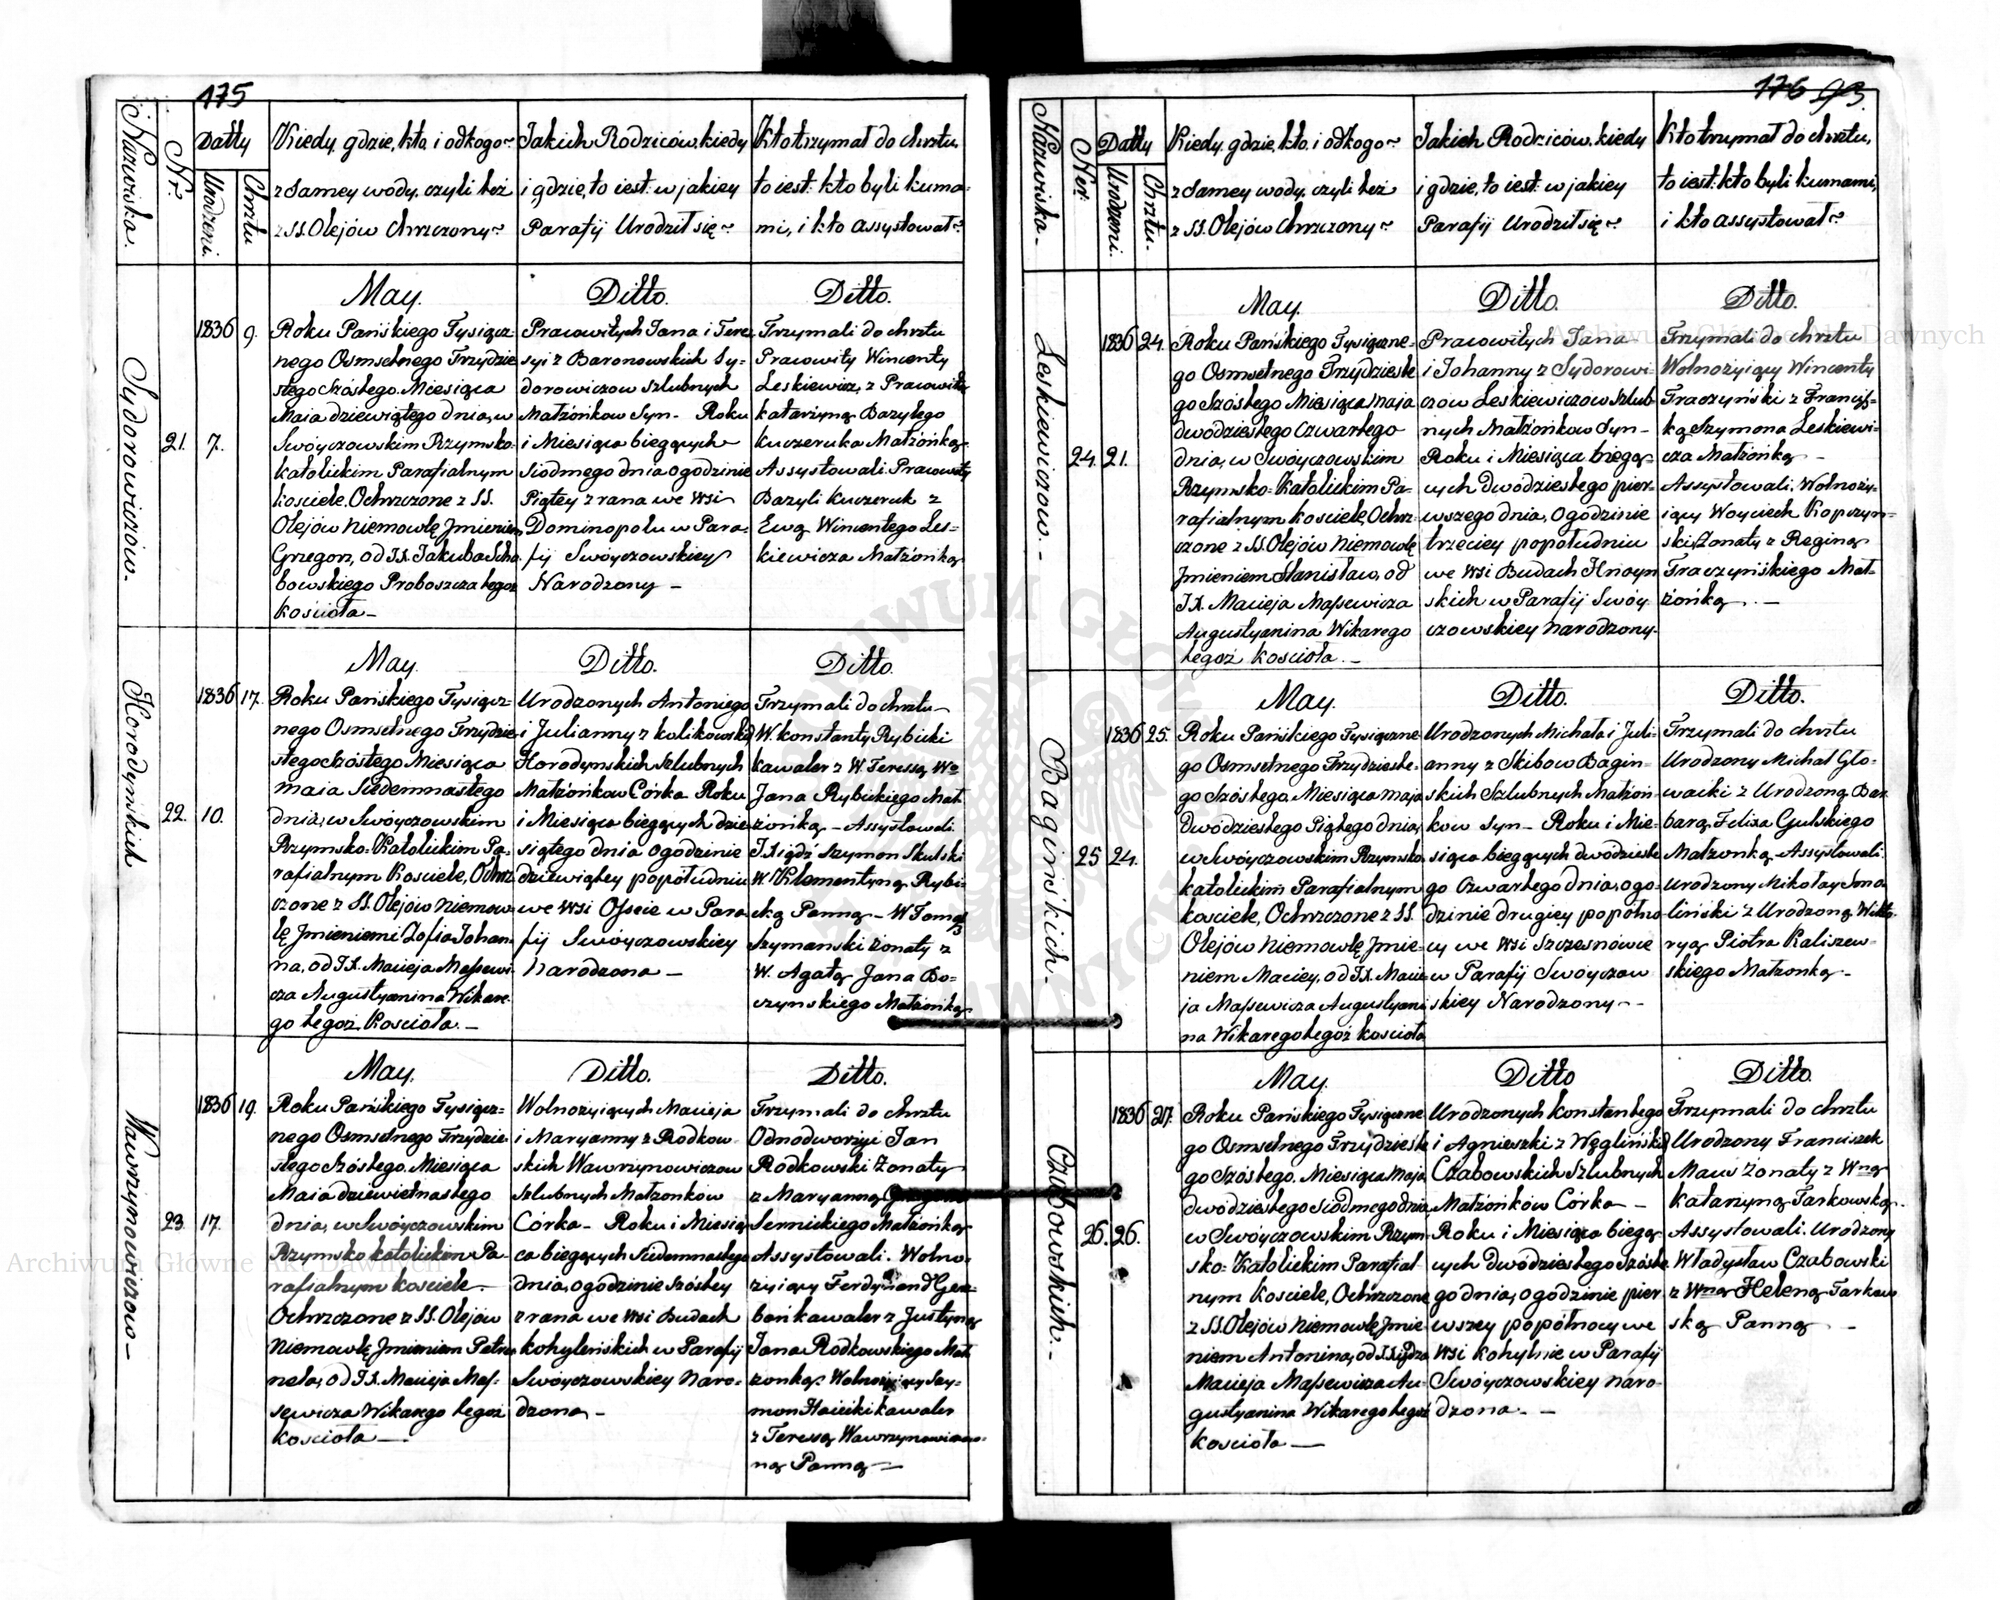 175
Nazwiska.
Nr.
Datty
Urodzeni.
Chrztu
Kiedy, gdzie, kto, i od kogo?
z samey wody, czyli też
z SS. Olejów Chrzczony?
Jakich Rodziców, kiedy
i gdzie, to iest: w jakiey
Parafij Urodził się?
Kto trzymał do chrztu,
to iest: kto byli kuma-
mi, i kto assystował?
Sydorowiczów.
21.
1836
7.
9.
May.
Roku Pańskiego Tysiącz-
nego Osmsetnego Trzydzie
stego Szóstego. Miesiąca
Maia dziewiątego dnia, w
Swóyczowskim Rzymsko-
katolickim Parafialnym
kosciele. Ochrzczone z SS.
Olejów Niemowlę Jmieniem
Grzegorz, od J.X. Jakuba Scha
bowskiego Proboszcza tegoż
kościoła —
Ditto.
Pracowitych Jana i Tere
syi z Baronowskich Sy-
dorowiczow Szlubnych
Małżonkow Syn - Roku
i Miesiąca bieżących
Siodmego dnia o godzinie
Piątey z rana we Wsi
Dominopolu w Para-
fij Swóyczowskiey
Narodzony —
Ditto.
Trzymali do chrztu
Pracowity Wincenty
Leskiewicz, z Pracowitą
katarzyną Bazylego
kuczeruka Małżonką.
Assystowali. Pracowity
Bazyli kuczeruk z
Ewą Wincentego Les-
kiewicza Małżonką
Horodyńskich
22.
1836
10.
17.
May.
Roku Pańskiego Tysiącz-
nego Osmsetnego Trzydzie
stego Szóstego Miesiąca
Maia Siedemnastego
dnia, w Swóyczowskim
Rzymsko-Katolickim Pa-
rafialnym kosciele, Ochrz
czone z SS. Olejów Niemow-
lę Jmieniem Zofia Johan
na, od J.X. Macieja Massewi
cza Augustyanina Wikare
go tegoż Kościoła. —
Ditto.
Urodzonych Antoniego
i Julianny z kulikowskich
Horodynskich Szlubnych
Małżonkow Córka Roku
i Miesiąca bieżących dzie
siątego dnia o godzinie
dziewiątey popołudniu
we Wsi Ossie w Para
fij Swóyczowskiey
Narodzona —
Ditto.
Trzymali do chrztu
W. konstanty Rybicki
kawaler z W. Teressą Wo
Jana Rybickiego Mał
żonką - Assystowali
J. Xiądź Szymon Skulski
W. Klementyną Rybi-
cką Panną - W Tomasz
Szymanski żonaty z
W. Agatą Jana Bo-
czynskiego Małżonką
Wawrzynowiczow —
23.
1836
17.
19.
May.
Roku Pańskiego Tysiącz-
nego Osmsetnego Trzydzie
stego Szóstego. Miesiąca
Maia dziewietnastego
dnia, w Swóyczowskim
Rzymsko katolickim Pa-
rafialnym kościele —
Ochrzczone z SS. Olejów
Niemowlę Jmieniem Petro
nela, od J.X. Macieja Mas-
sewicza Wikarego tegoż
kościoła —
Ditto.
Wolnożyiących Macieja
i Maryanny z Rodkow
skich Wawrzynowiczow
Szlubnych Małżonków
Córka - Roku i Miesią
ca bieżących Siedemnastego
dnia, o godzinie Szóstey
z rana we Wsi Budach
kohyleńskich w Parafij
Swóyczowskiey Naro-
dzona —
Ditto.
Trzymali do chrztu
Odnodworzyi Jan
Rodkowski żonaty
z Maryanną
Sennickiego Małżonką
Assystowali. Wolno
żyiący Ferdynand Ger-
bon kawaler z Justyną
Jana Rodkowskiego Mał
żonką. Wolnożyiący Szy-
mon Haiecki kawaler
z Teressą Wawrzynowiczow
ną Panną —
176 93.
Nazwiska.
Nor.
Datty
Urodzeni.
Chrztu.
Kiedy, gdzie, kto, i od kogo?
z samey wody, czyli też
z SS. Olejów Chrzczony?
Jakich Rodziców, kiedy
i gdzie, to iest: w jakiey
Parafij Urodził się?
Kto trzymał do chrztu,
to iest: kto byli kumami,
i kto assystował?
Leskiewiczow. —
24.
1836
21.
24.
May.
Roku Pańskiego Tysiączne-
go Osmsetnego Trzydzieste
go Szóstego Miesiąca Maja
dwódziestego Czwartego
dnia, w Swóyczowskim
Rzymsko-Katolickim Pa-
rafialnym kosciele, Ochrz-
czone z SS. Olejów Niemowlę
Jmieniem Stanisław, od
J.X. Macieja Massewicza
Augustyanina Wikarego
tegoż Kościoła. —
Ditto.
Pracowitych Jana
i Johanny z Sydorowi-
czow Leskiewiczow Szlub-
nych Małżonkow Syn -
Roku i Miesiąca bieżą-
cych dwódziestego pier-
wszego dnia, o godzinie
trzeciey popołudniu
we Wsi Budach Hnoyn
skich w Parafij Swóy
czowskiey Narodzony-
Ditto.
Trzymali do chrztu
Wolnożyiący Wincenty
Traczyński z Francisz-
ką Szymona Leskiewi-
cza Małżonką —
Assystowali. Wolnoży-
iący Woyciech Kopczyn-
ski, Żonaty z Reginą
Traczyńskiego Mał-
żonką . —
Baginskich.
25
1836
24.
25.
May.
Roku Pańskiego Tysiączne
go Osmsetnego Trzydzieste-
go Szóstego. Miesiąca Maja
Dwódziestego Piątego dnia,
w Swóyczowskim Rzymsko
katolickim Parafialnym
kosciele, Ochrzczone z SS.
Olejów Niemowlę Jmie-
niem Maciey, od J.X. Macie
ja Massewicza Augustyani
na Wikarego tegoż kościoła
Ditto.
Urodzonych Michała i Juli-
anny z Skibow Bagin-
skich Szlubnych Małżon-
kow Syn - Roku i Mie-
siąca bieżących dwódzieste
go Czwartego dnia, o go-
dzinie drugiey popółno
cy we Wsi Szczesnówie
w Parafij Swóyczow
skiey Narodzony —
Ditto.
Trzymali do chrztu
Urodzony Michał Gło-
wacki z Urodzoną Bar
barą Felixa Gulskiego
Małżonką. Assystowali.
Urodzony Mikołay Smo
liński z Urodzoną Wikto-
ryą Piotra Kaliszew-
skiego Małżonką —
Czabowskich. —
26.
1836
26.
27.
May.
Roku Pańskiego Tysiączne
go Osmsetnego Trzydzieste
go Szóstego. Miesiąca Maja
dwódziestego Siódmego dnia
w Swóyczowskim Rzym-
sko-Katolickim Parafial-
nym kosciele, Ochrzczone
z SS. Olejów Niemowlę Jmie
niem Antonina, od J. Xiędza
Macieja Massewicza Au-
gustyanina Wikarego tegoż
kościoła —
Ditto
Urodzonych konstantego
i Agnieszki z Węglińskich
Czabowskich Szlubnych
Małżonków Córka —
Roku i Miesiąca bieżą-
cych dwódziestego Szóste
go dnia, o godzinie pier
wszey popółnocy we
Wsi kohylnie w Parafij
Swóyczowskiey Naro-
dzona. —
Ditto.
Trzymali do chrztu
Urodzony Franciszek
Mauw Żonaty z Wną
katarzyną Tarkowską.
Assystowali. Urodzony
Władysław Czabowski
z Wną Heleną Tarkow
ską Panną —
Archiwum Główne Akt Dawnych
Archiwum Główne Akt Dawnych